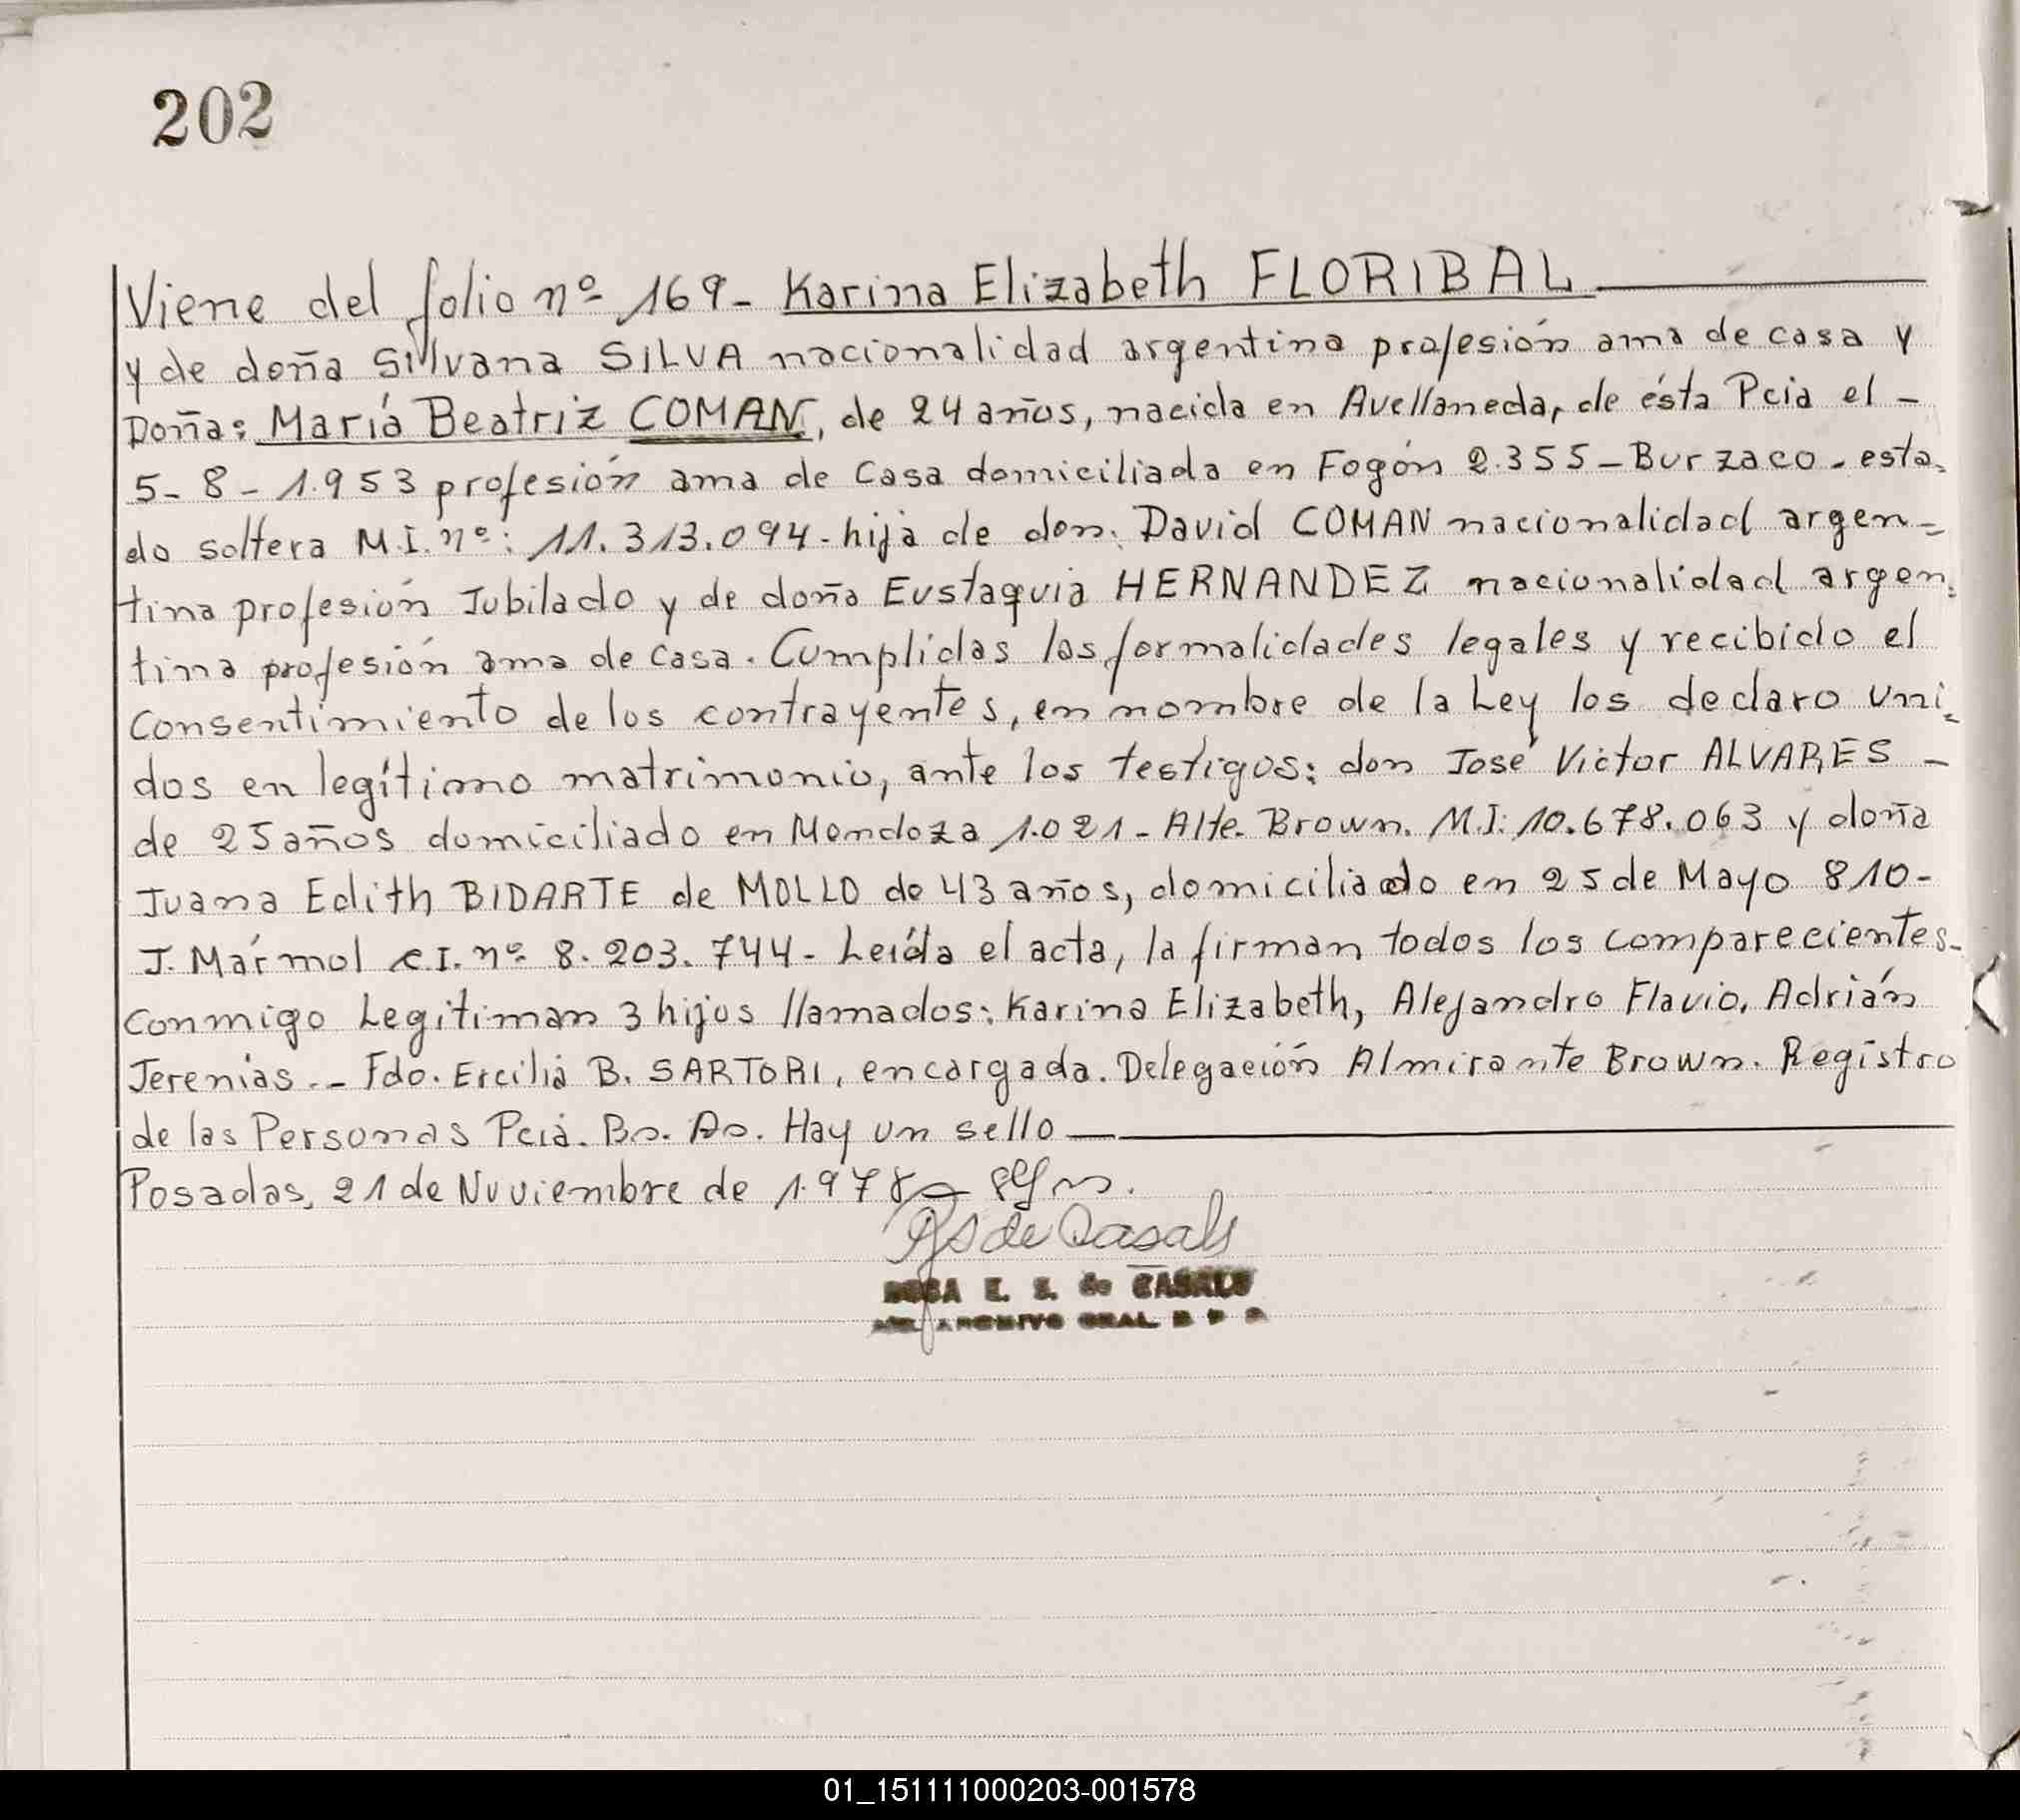 202
Viene del folio nº 169- Karina Elizabeth FLORIBAL
y de doña Silvana SILVA nacionalidad argentina profesión ama de casa y
Doña: María Beatriz COMAN, de 24 años, nacida en Avellaneda, de ésta Pcia el -
5-8-1.953 profesión ama de casa domiciliada en Fogón 2.355-Burzaco-esta-
do soltera M.I. nº: 11.313.094- hija de don: David COMAN nacionalidad argen-
tina profesión Jubilado y de doña Eustaquia HERNANDEZ nacionalidad argen-
tina profesión ama de casa. Cumplidas las formalidades legales y recibido el
consentimiento de los contrayentes, en nombre de la Ley los declaro uni-
dos en legítimo matrimonio, ante los testigos: don José Victor ALVARES -
de 25 años domiciliado en Mendoza 1.021- Alte. Brown. M.I: 10.678.063 y doña
Juana Edith BIDARTE de MOLLO de 43 años, domiciliado en 25 de Mayo 810-
J. Mármol C.I. nº 8.203.744- Leída el acta, la firman todos los comparecientes-
conmigo Legitiman 3 hijos llamados: Karina Elizabeth, Alejandro Flavio, Adrián
Jerenías.-- Fdo. Ercilia B. SARTORI, encargada. Delegación Almirante Brown. Registro
de las Personas Pcia. Bs. As. Hay un sello
Posadas, 21 de Noviembre de 1.978
de Casals
ROSA E. S. de CASALS
ARCHIVO GRAL
01_151111000203-001578